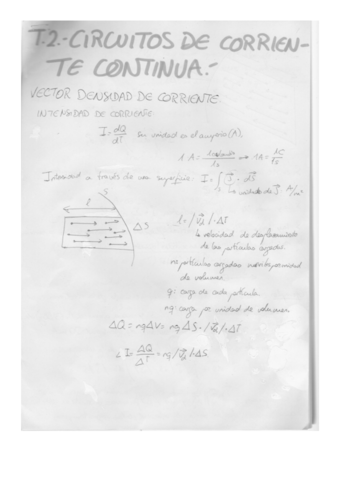 T.2.- CIRCUITOS DE CORRIEN-
TE CONTINUA.-
VECTOR DENSIDAD DE CORRIENTE
INTENSIDAD DE CORRIENTE
I = dQ/dT Su unidad es el amperio (A).
1 A = 1 culombio/1s → 1A = 1C/1s
Intensidad a través de una superficie. I = ∫ J · dS
unidades de J A/m²
S
l
ΔS
l = /Vd/ · ΔT
la velocidad de desplazamiento
de las partículas cargadas
n: partículas cargadas por unidad
de volumen.
q: carga de cada partícula
nq: carga por unidad de volumen
ΔQ = nqΔV = nq ΔS · /Vd/ · ΔT
I = ΔQ/ΔT = nq/Vd/ΔS.